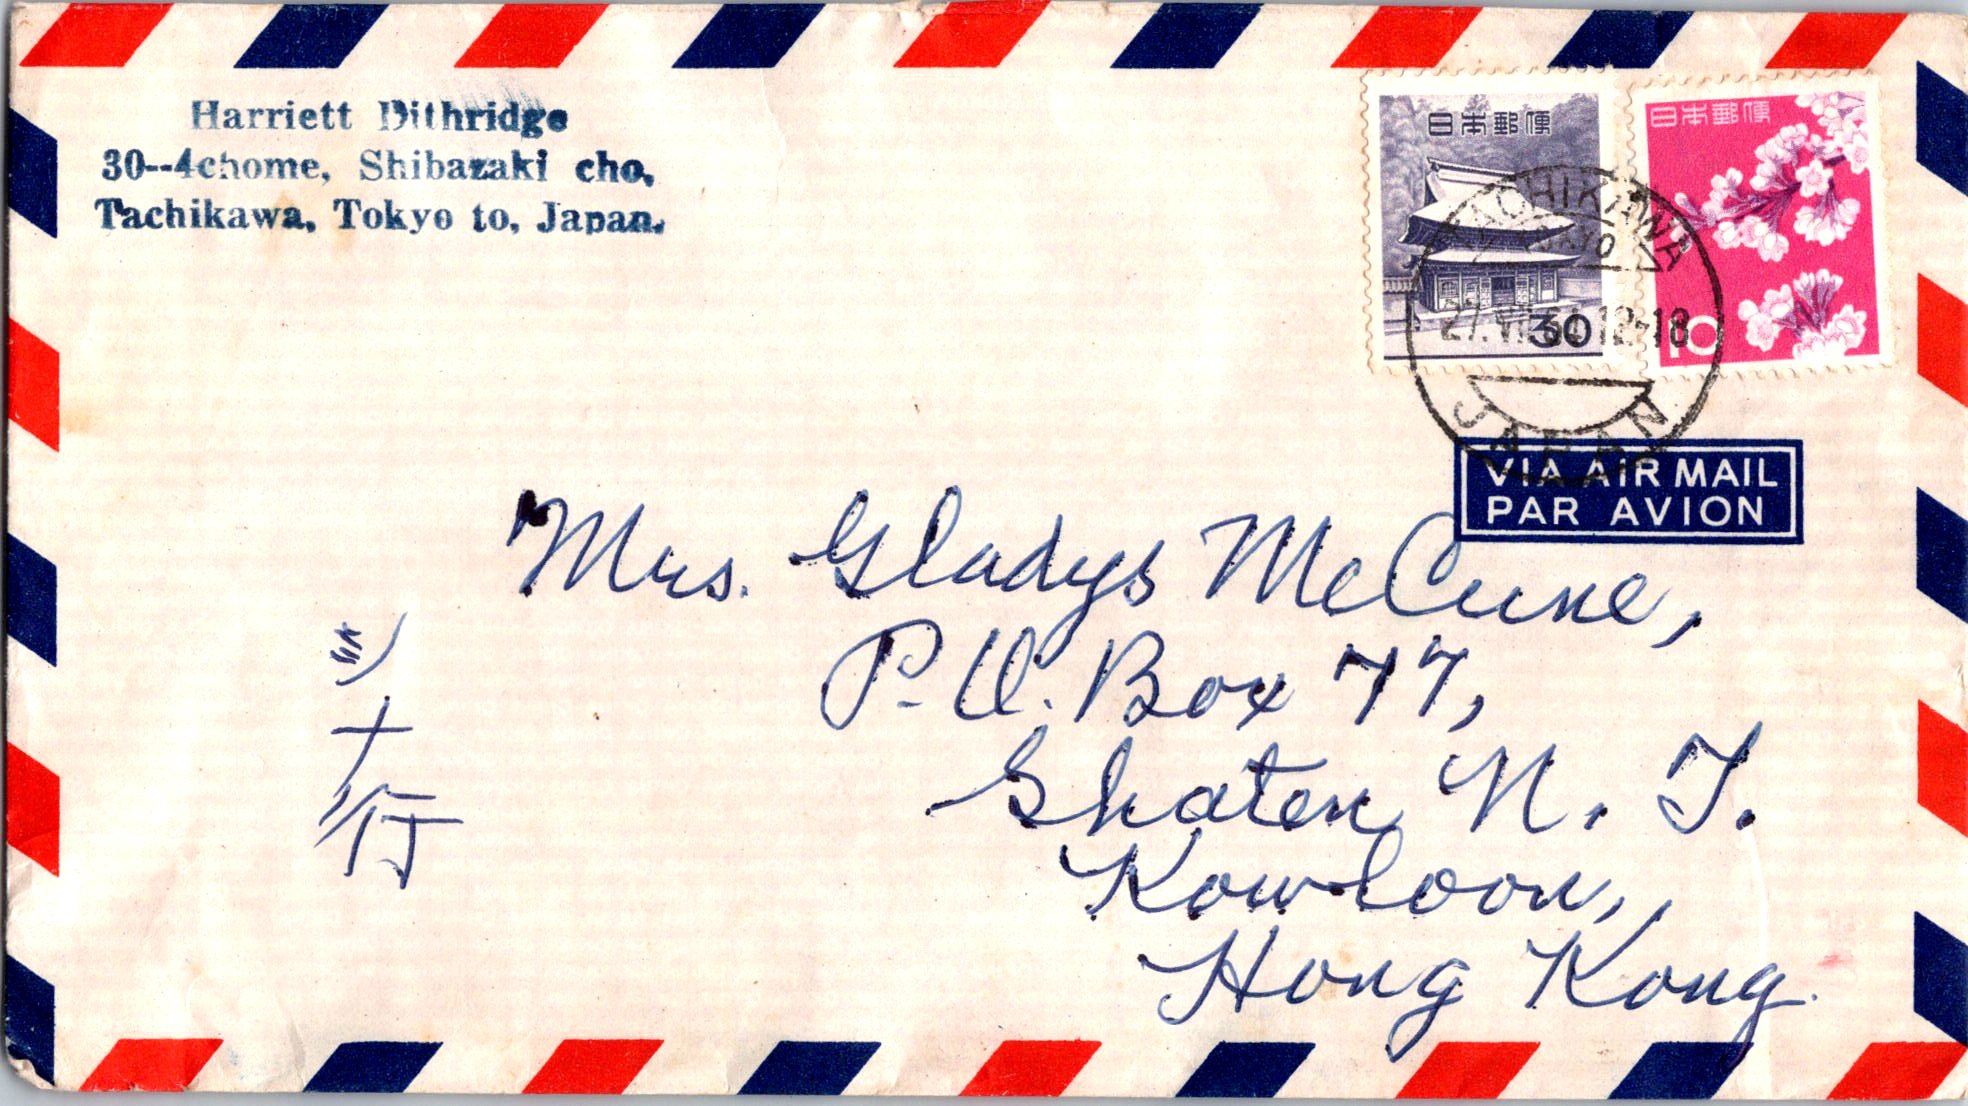 Harriett Dithridge
30--4chome, Shibazaki cho,
Tachikawa, Tokyo to, Japan.
日本郵便
30
日本郵便
10
TACHIKAWA
TOKYO
12-18
JAPAN
VIA AIR MAIL
PAR AVION
Mrs. Gladys McCune,
P.O. Box 77,
Shaten, N. T.
Kowloon,
Hong Kong.
行